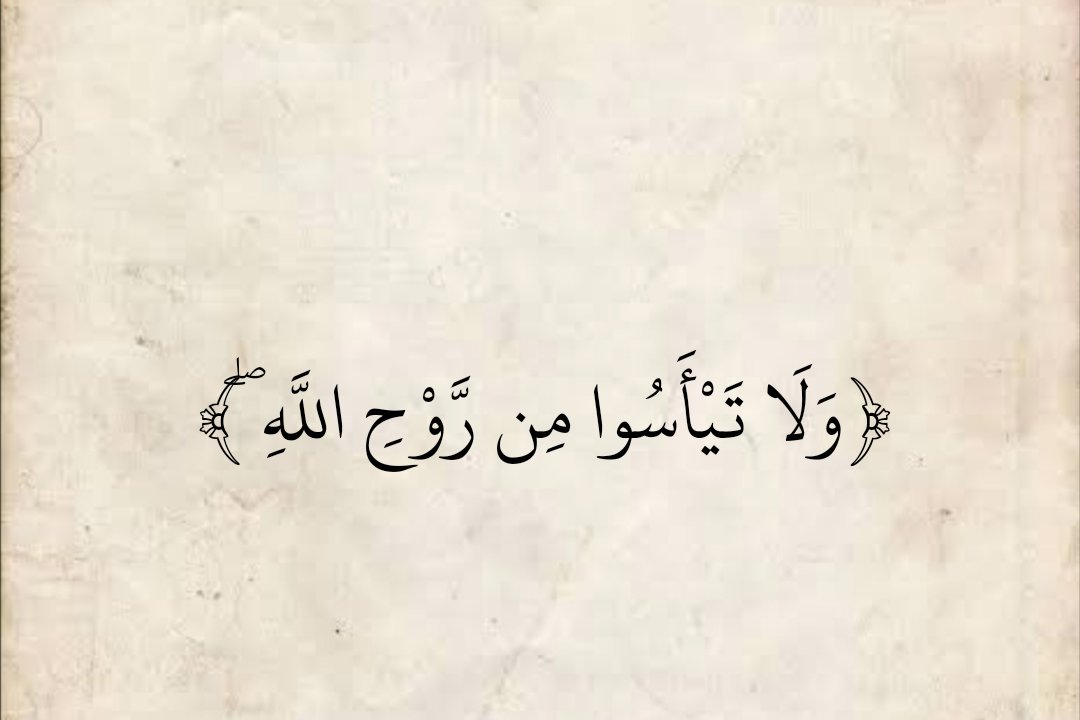 ﴿وَلَا تَيْأَسُوا مِن رَّوْحِ اللَّهِ ۖ﴾